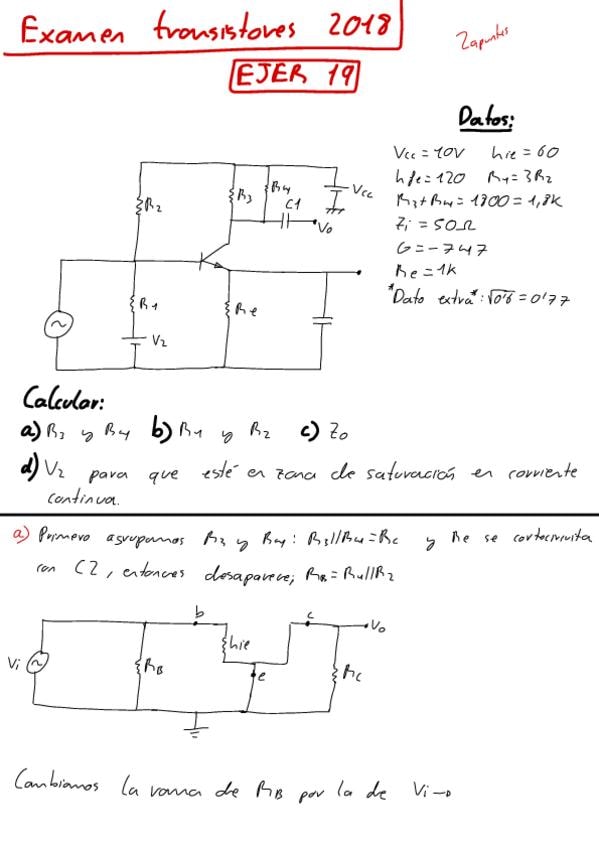 Examen transistores 2018
Zapuntes
EJER 19
Datos:
Vcc = 10V hie = 60
hfe = 120 R1 = 3R2
R3 + R4 = 1800 = 1,8K
Zi = 50Ω
G = -747
Re = 1k
*Dato extra*: √0'6 = 0'77
R2
R3
R4
C1
Vcc
Vo
R1
Re
V2
Calcular:
a) R3 y R4 b) R1 y R2 c) Zo
d) V2 para que esté en zona de saturación en corriente
continua.
a) Primero agrupamos R3 y R4: R3//R4 = Rc y Re se cortocircuita
con C2, entonces desaparece; RB = R1//R2
b
c
Vo
hie
Vi
RB
e
Rc
Cambiamos la rama de RB por la de Vi→